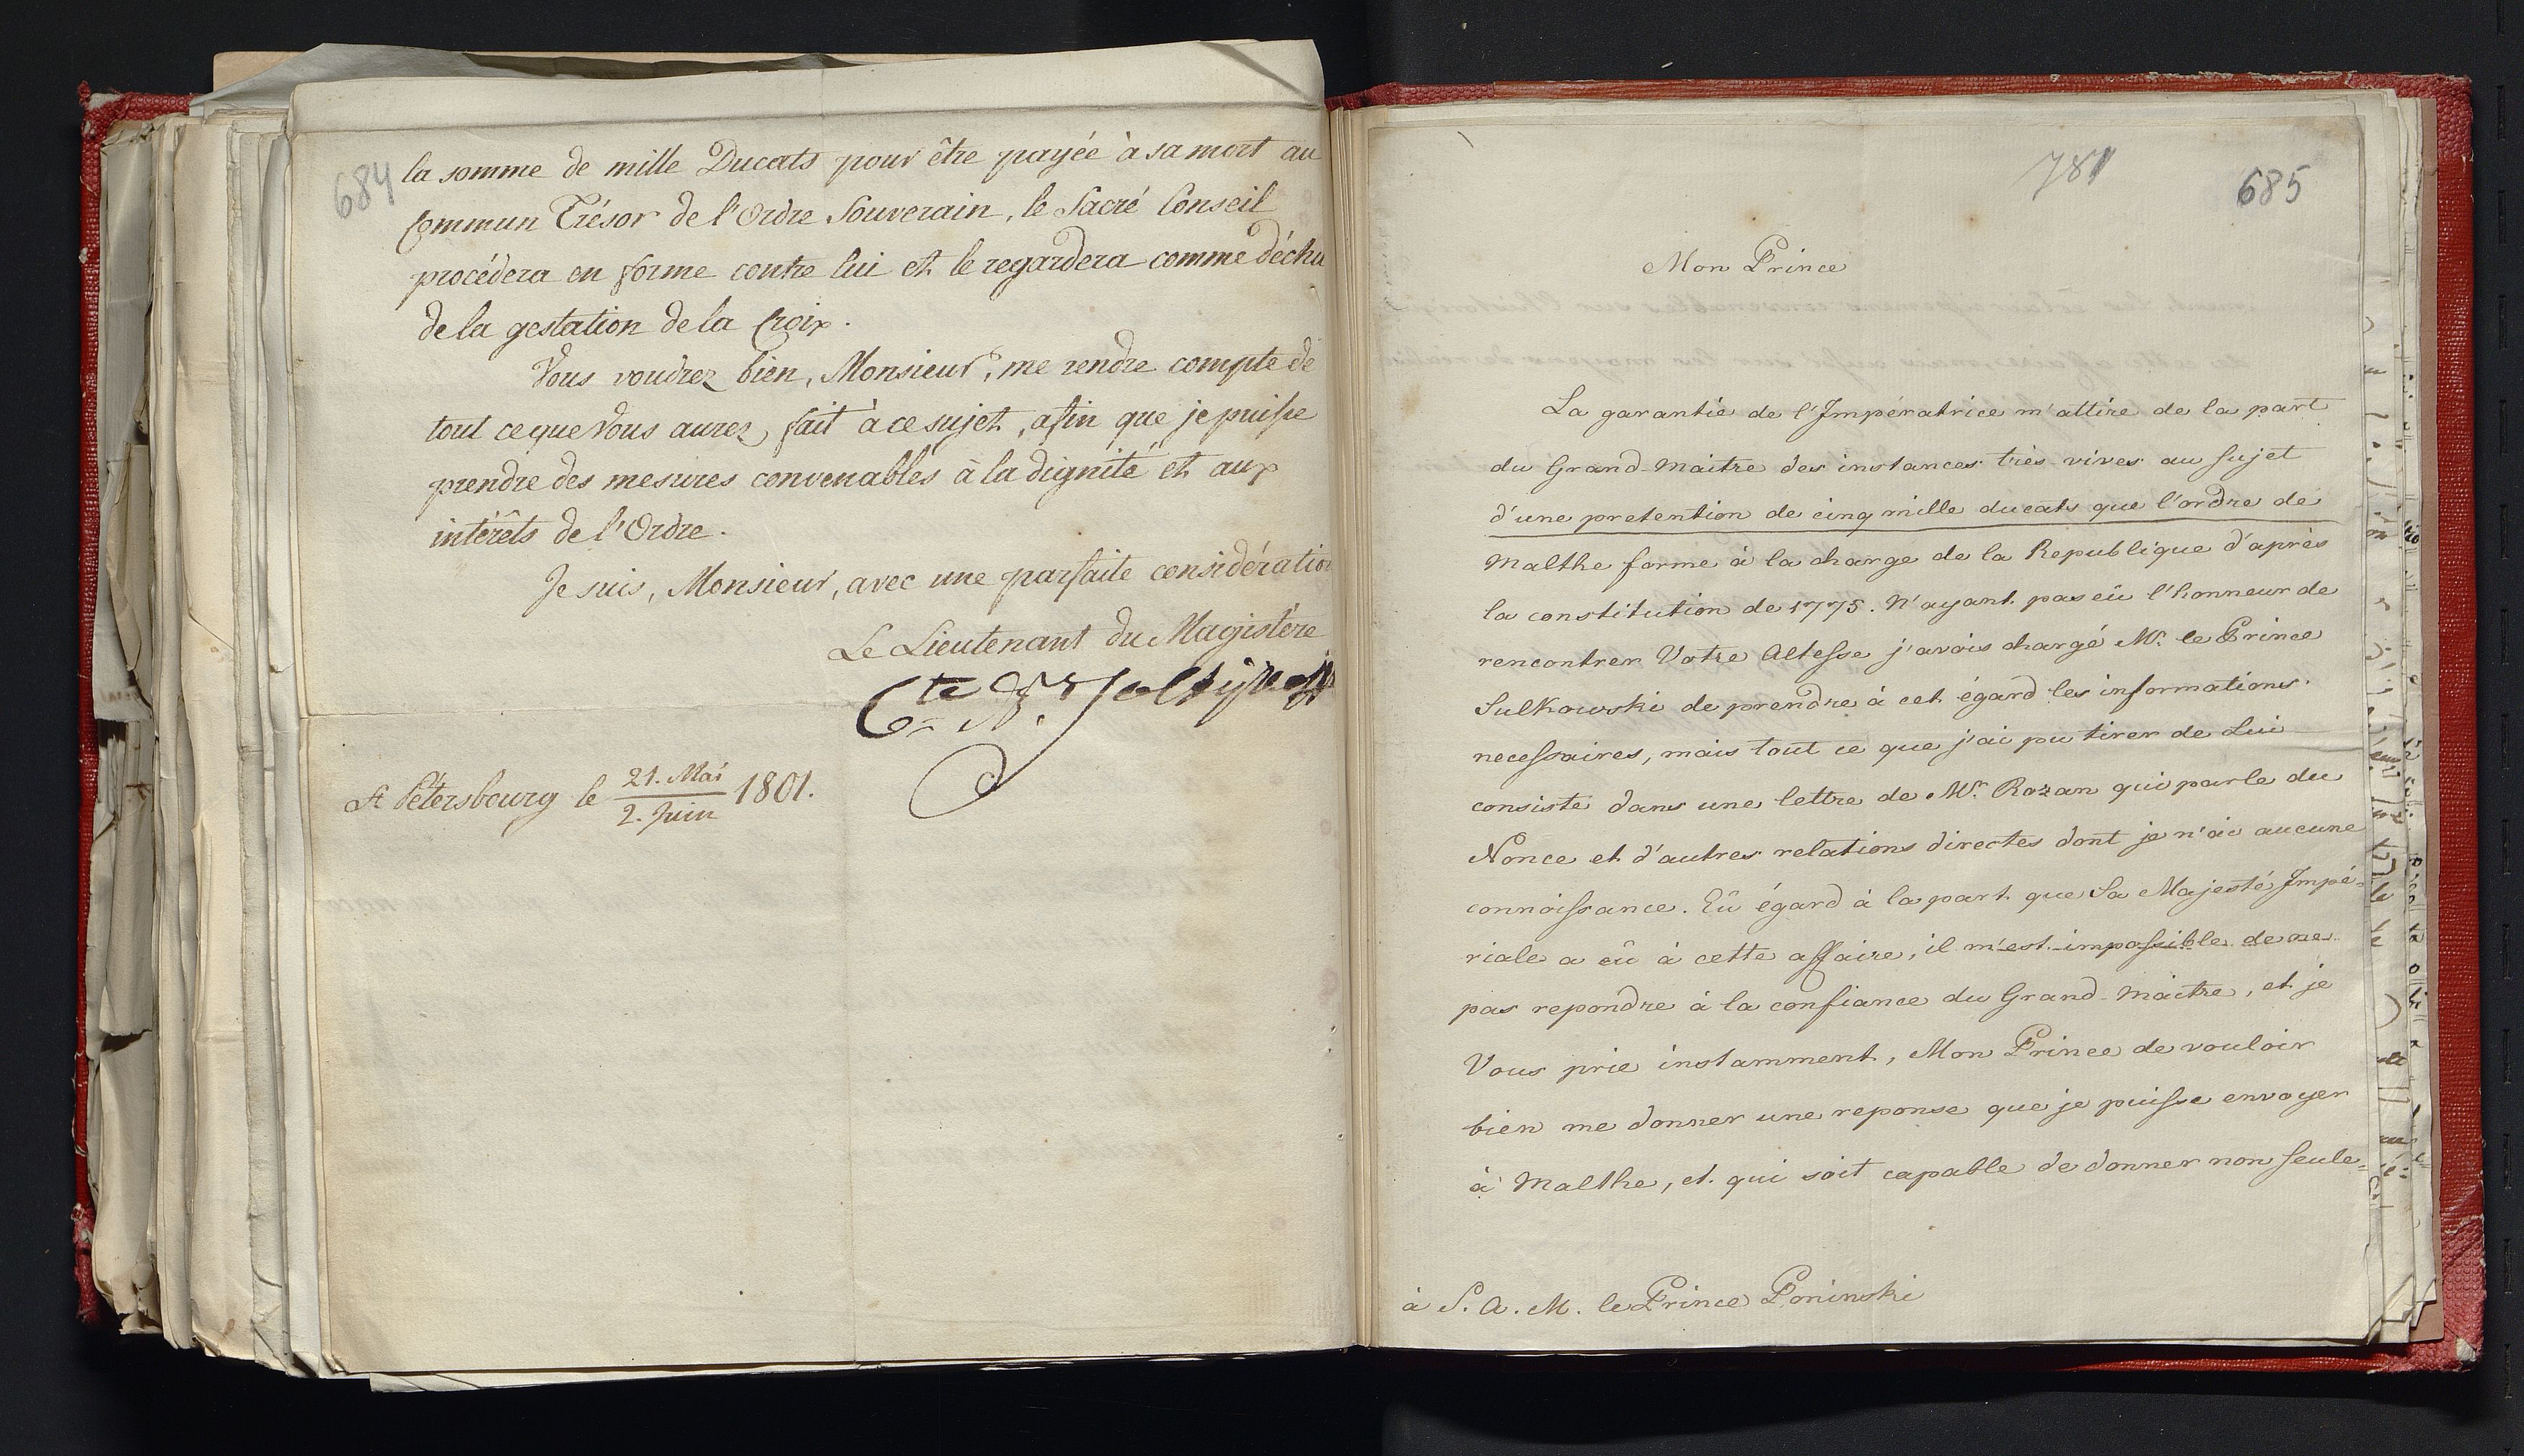 684
la somme de mille Ducats pour être payée à sa mort au
Commun Trésor de l'Ordre Souverain, le Sacré Conseil
procédera en forme contre lui et le regardera comme déchu
de la gestation de la Croix.
Vous voudrez bien, Monsieur, me rendre compte de
tout ce que Vous aurez fait à ce sujet, afin que je puisse
prendre des mesures convenables à la dignité et aux
intérêts de l'Ordre.
Je suis, Monsieur, avec une parfaite considération
Le Lieutenant du Magistère
Cte N.
St Pétersbourg le 21. Mai / 2. Juin 1801.
781
685
Mon Prince
La garantie de l'Impératrice m'attire de la part
du Grand-Maitre des instances très-vives au sujet
d'une pretention de cinq mille ducats que l'ordre de
Malthe forme à la charge de la Republique d'après
la constitution de 1775. N'ayant pas eû l'honneur de
rencontrer Votre Altesse j'avois chargé Mr. le Prince
Sulkowski de prendre à cet égard les informations
necessaires, mais tout ce que j'ai pu tirer de Lui
consiste dans une lettre de Mr. Rozan qui parle du
Nonce et d'autres relations directes dont je n'ai aucune
connoissance. Eû égard à la part que Sa Majesté Impé=
riale a eû à cette affaire, il m'est impossible de ne
pas repondre à la confiance du Grand-Maitre, et je
Vous prie instamment, Mon Prince de vouloir
bien me donner une reponse que je puisse envoyer
à Malthe, et qui soit capable de donner non seule=
à S. A. M. le Prince Poninski